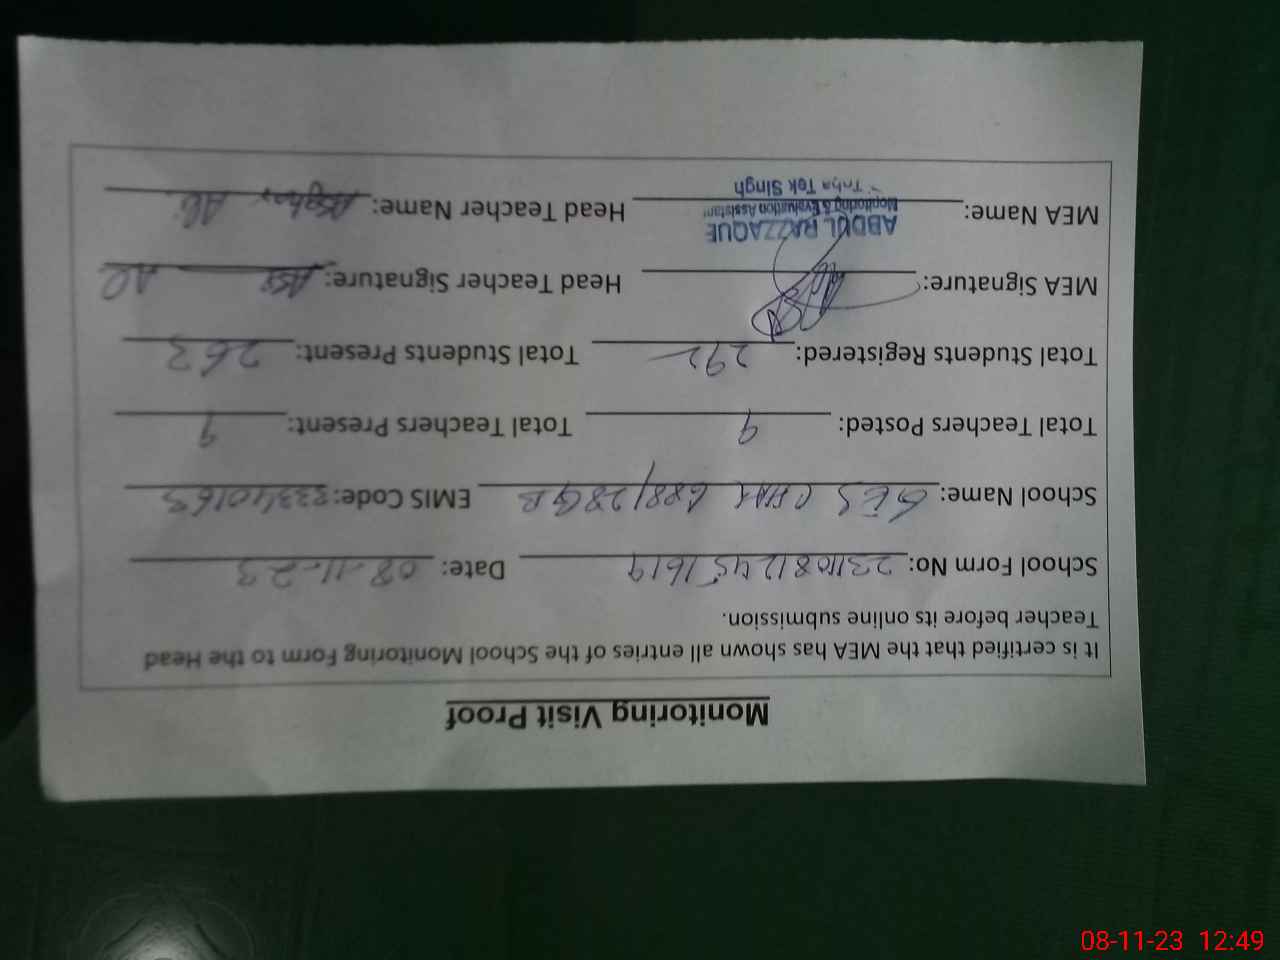 Monitoring Visit Proof
It is certified that the MEA has shown all entries of the School Monitoring Form to the Head
Teacher before its online submission.
School Form No: 23110812451619 Date: 08-11-23
School Name: GES CHAK 688/28GB EMIS Code: 33340163
Total Teachers Posted: 9 Total Teachers Present: 9
Total Students Registered: 292 Total Students Present: 263
MEA Signature: Head Teacher Signature:
MEA Name: ABDUL RAZZAQUE Head Teacher Name: Asghar Ali
Monitoring & Evaluation Assistant
Toba Tek Singh
08-11-23 12:49